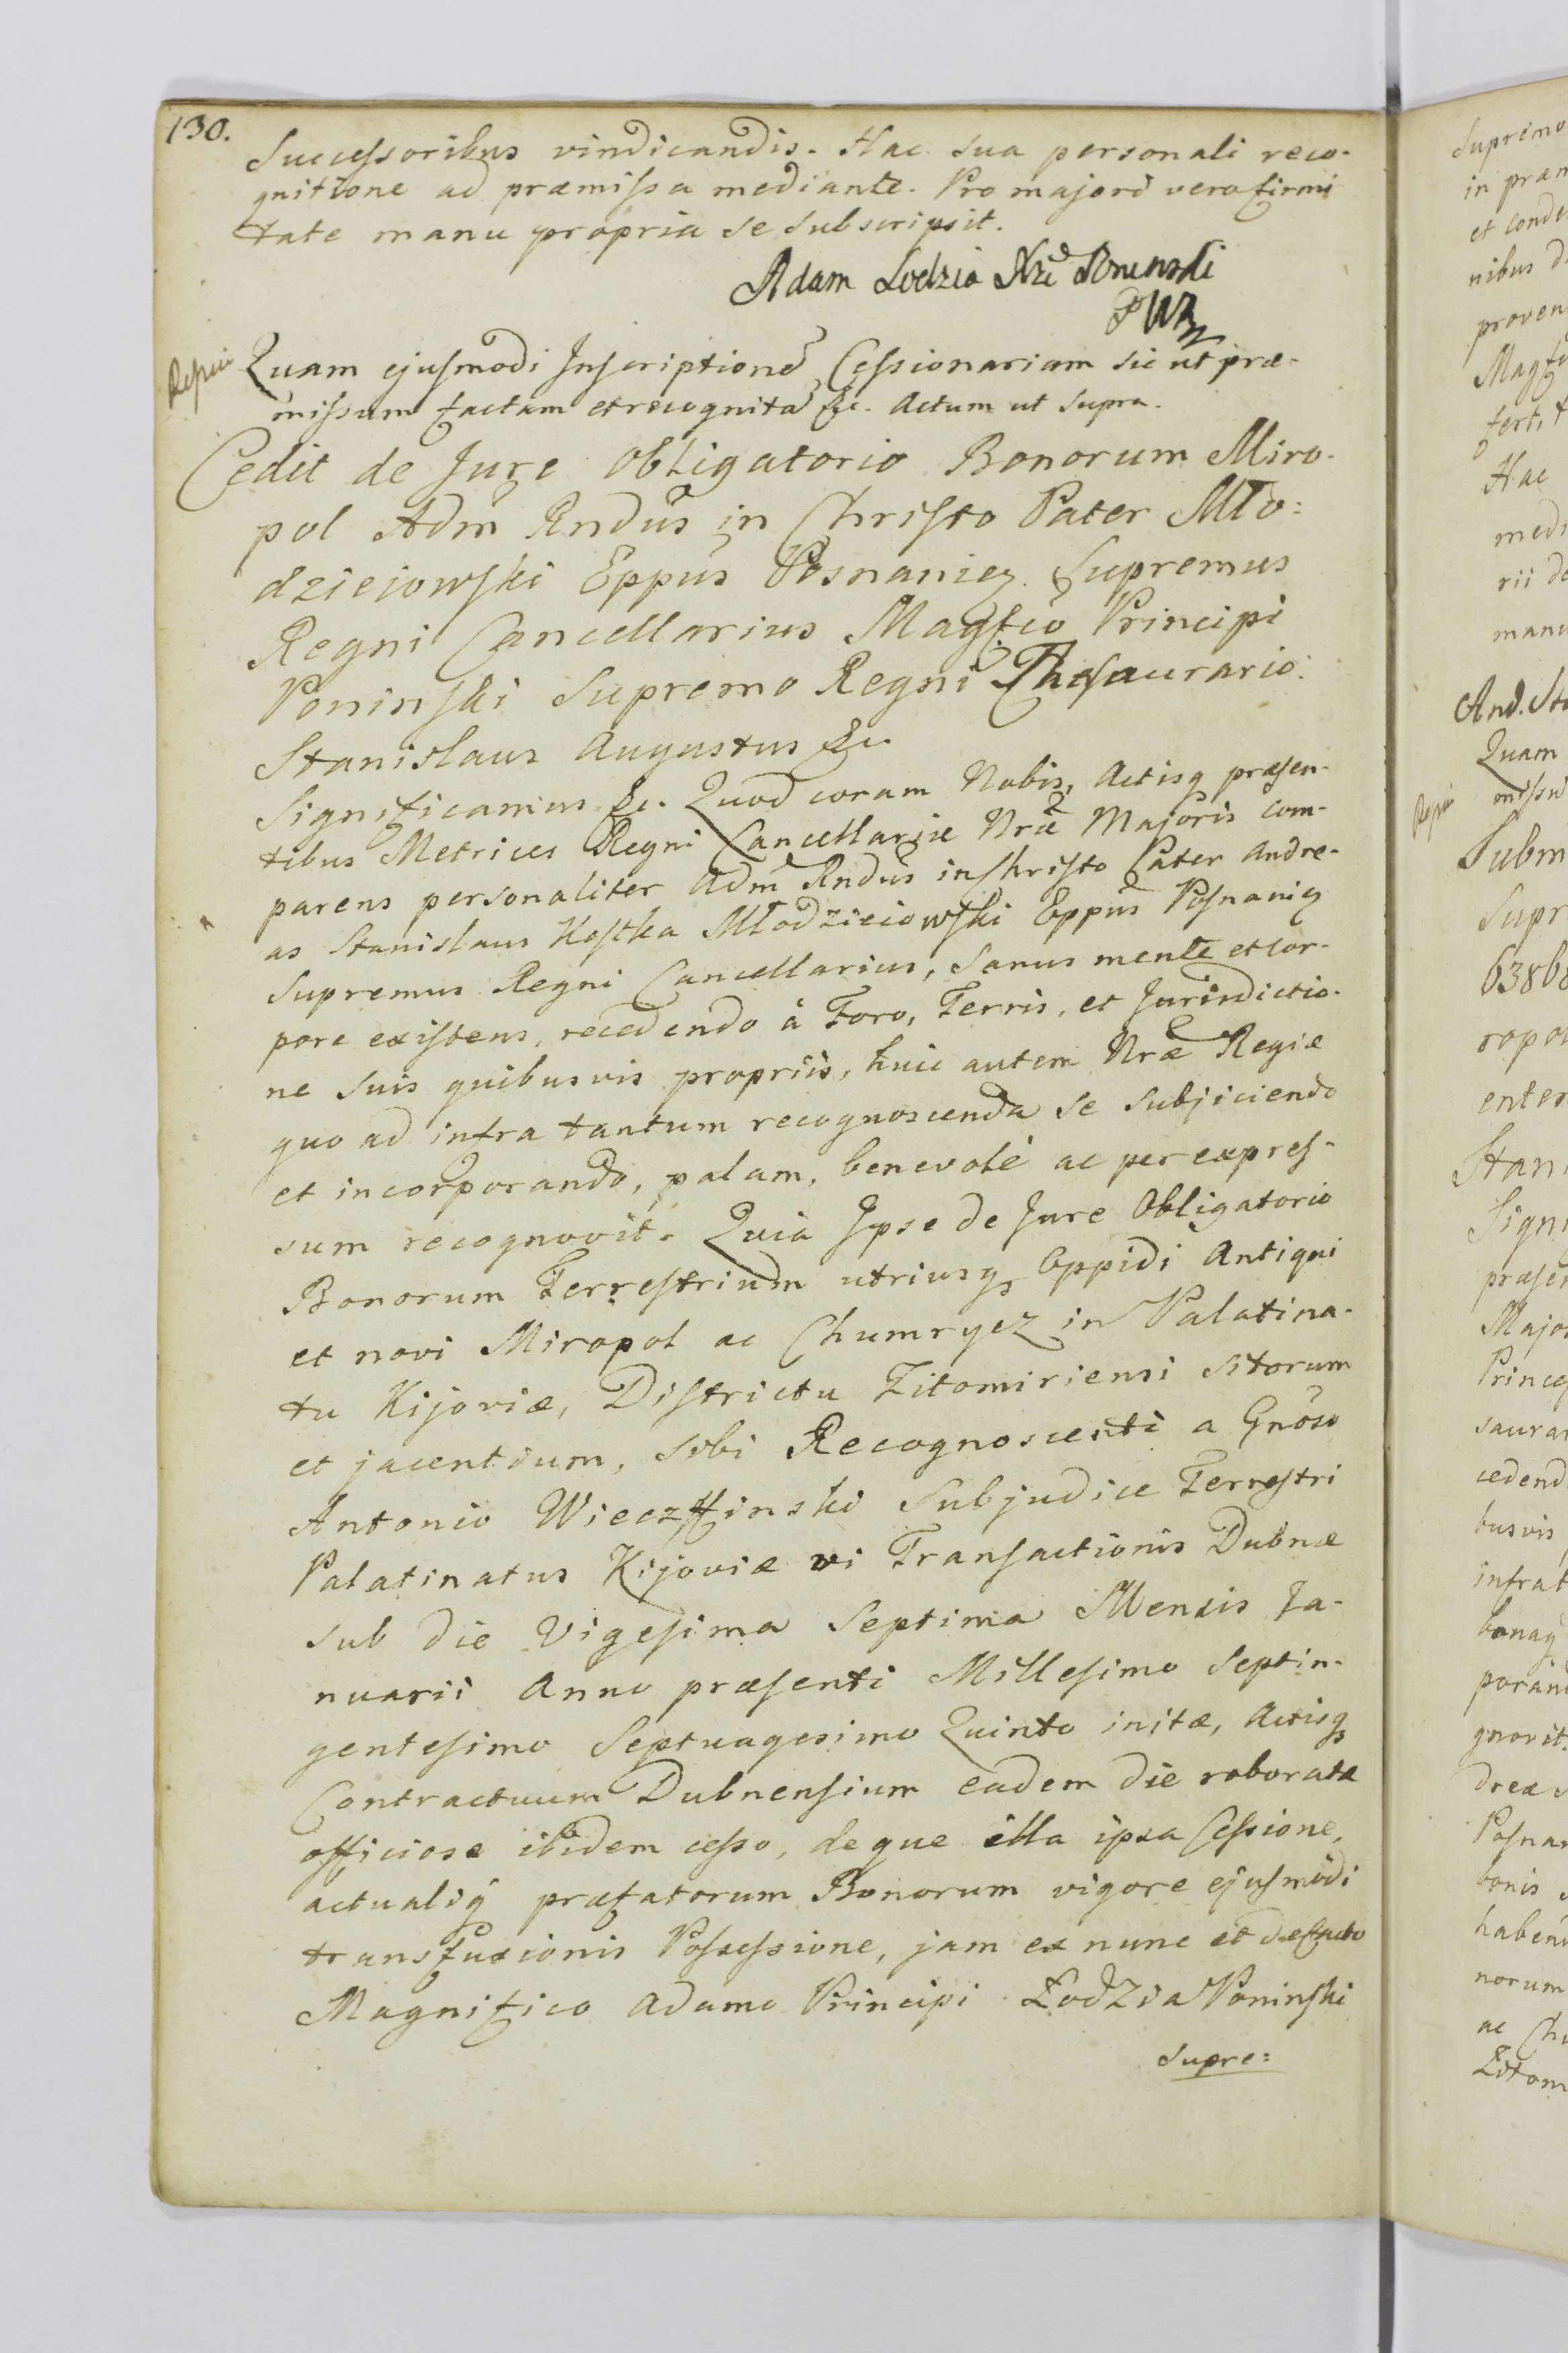 130.
Successoribus vindicandis. Hac sua personali reco-
gnitione ad præmissa mediante. Pro majori vero firmi
tate manu propria se subscripsit.
Adam Lodzia Xże Poninski
PWK
Quam ejusmodi Inscriptione Cessionariam sic ut præ-
missum factam et recognita &c. Actum ut Supra.
Cedit de Jure obligatorio Bonorum Miro-
pol Adm Rndus in Christo Pater Mło:
dzieiowski Eppus Posnanieǥ. Supremus
Regni Cancellarius Magfco Principi
Poninski Supremo Regni Thesaurario.
Stanislaus Augustus &c.
Significamus &c. Quod coram Nobis, Actisq præsen-
tibus Metrices Regni Cancellariæ Nræ Majoris com-
parens personaliter Adm Rndus in Christo Pater Andre-
as Stanislaus Kostka Młodzieiowski Eppus Posnanieǥ
Supremus Regni Cancellarius, Sanus mente et cor-
pore existens, recedendo à Foro, Terris, et Jurisdictio-
ne suis quibusvis propriis, huic autem Nræ Regiæ
quo ad infra tantum recognoscenda se subjiciendo
et incorporando, palam, benevolè ac per expres-
sum recognovit. Quia Ipse de Jure Obligatorio
Bonorum Terrestrium utriusq Oppidi Antiqui
et novi Miropol ac Chumrycz in Palatina-
tu Kijoviæ, Districtu Zitomiriensi sitorum
et jacentium, sibi Recognoscenti a Gnoso
Antonio Subjudice Terrestri
Palatinatus Kijoviæ vi Transactionis Dubnæ
sub die Vigesima Septima Mensis Ja-
nuarii Anno præsenti Millesimo Septin-
gentesimo Septuagesimo Quinto initæ, Actisq
Contractuum Dubnensium eadem die roboratæ
officiose ibidem cesso, deque illa ipsa Cessione,
actualiq præfatorum Bonorum vigore ejusmodi
transfusionis Possessione, jam ex nunc et defacto
Magnifico Adamo Principi Łodzia Poninski
Supre:
Supremo
in præm
et conde
nibus d
proven
Magf
fert, t
Hac
medi
rii de
manu
And. Sta
Quam
missu
Subm
Supr
6386
ropol
enter
Stan
Sign
præse
Major
Princep
saurar
cedend
busvis
infrat
bonaq
poran
gnovit.
dreæ
Posnan
bonis
haben
norum
ac Chu
Zitom